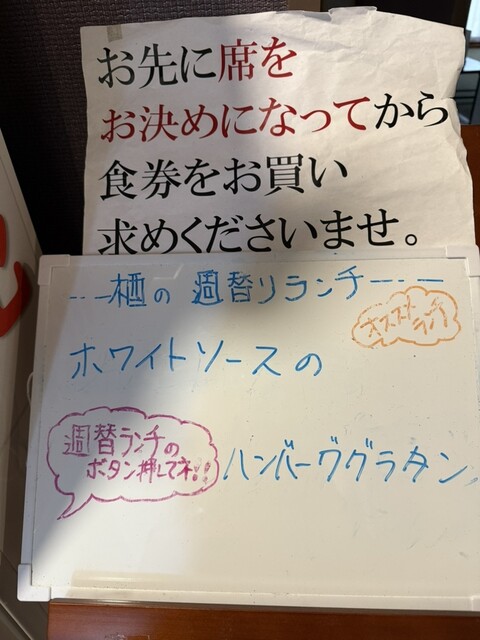 お先に席を
お決めになってから
食券をお買い
求めくださいませ。
栖の 週替りランチ
オススメ
ホワイトソースの
週替ランチの
ボタン押してネ!!
ハンバーググラタン
心